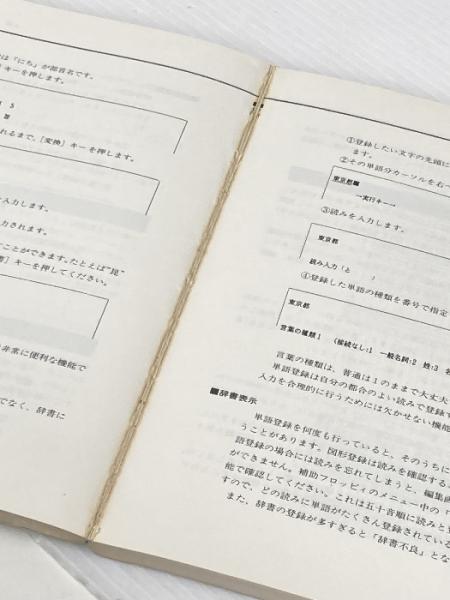 は『にち』が部首名です。
キーを押します。
れるまで、[変換] キーを押します。
入力します。
力されます。
ことができます。たとえば"昆"
書] キーを押してください。
非常に便利な機能で
でなく、辞書に
①登録したい文字の先頭に
ます。
②その単語分カーソルを右へ
東京都
→実行キー→
③読みを入力します。
東京都
読み入力「と 」
④登録した単語の種類を番号で指定
東京都
言葉の種類1 (接続なし:1 一般名詞:2 姓:3 名
言葉の種類は、普通は1のままで大丈夫
単語登録は自分の都合のよい読みで登録す
入力を合理的に行うためには欠かせない機能
■辞書表示
単語登録を何度も行っていると、そのうちに
うことがあります。図形登録は読みを確認する
語登録の場合には読みを忘れてしまうと、編集画
ができません。補助フロッピィのメニュー中の「
能で確認してください。これは五十音順に読みと
すので、どの読みに単語がたくさん登録されている
また、辞書の登録が多すぎると「辞書不良」とな